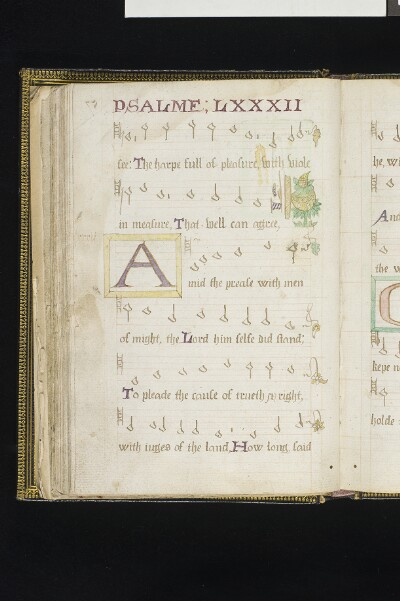 PSALME; LXXXII
see: The harpe full of pleasure, with viole
in measure, That well can agree,
A mid the prease with men
of might, the Lord him selfe did stand;
To pleade the cause of trueth & right,
with iuges of the land, How long, said
he, wi
And
the w
kepe n
holde